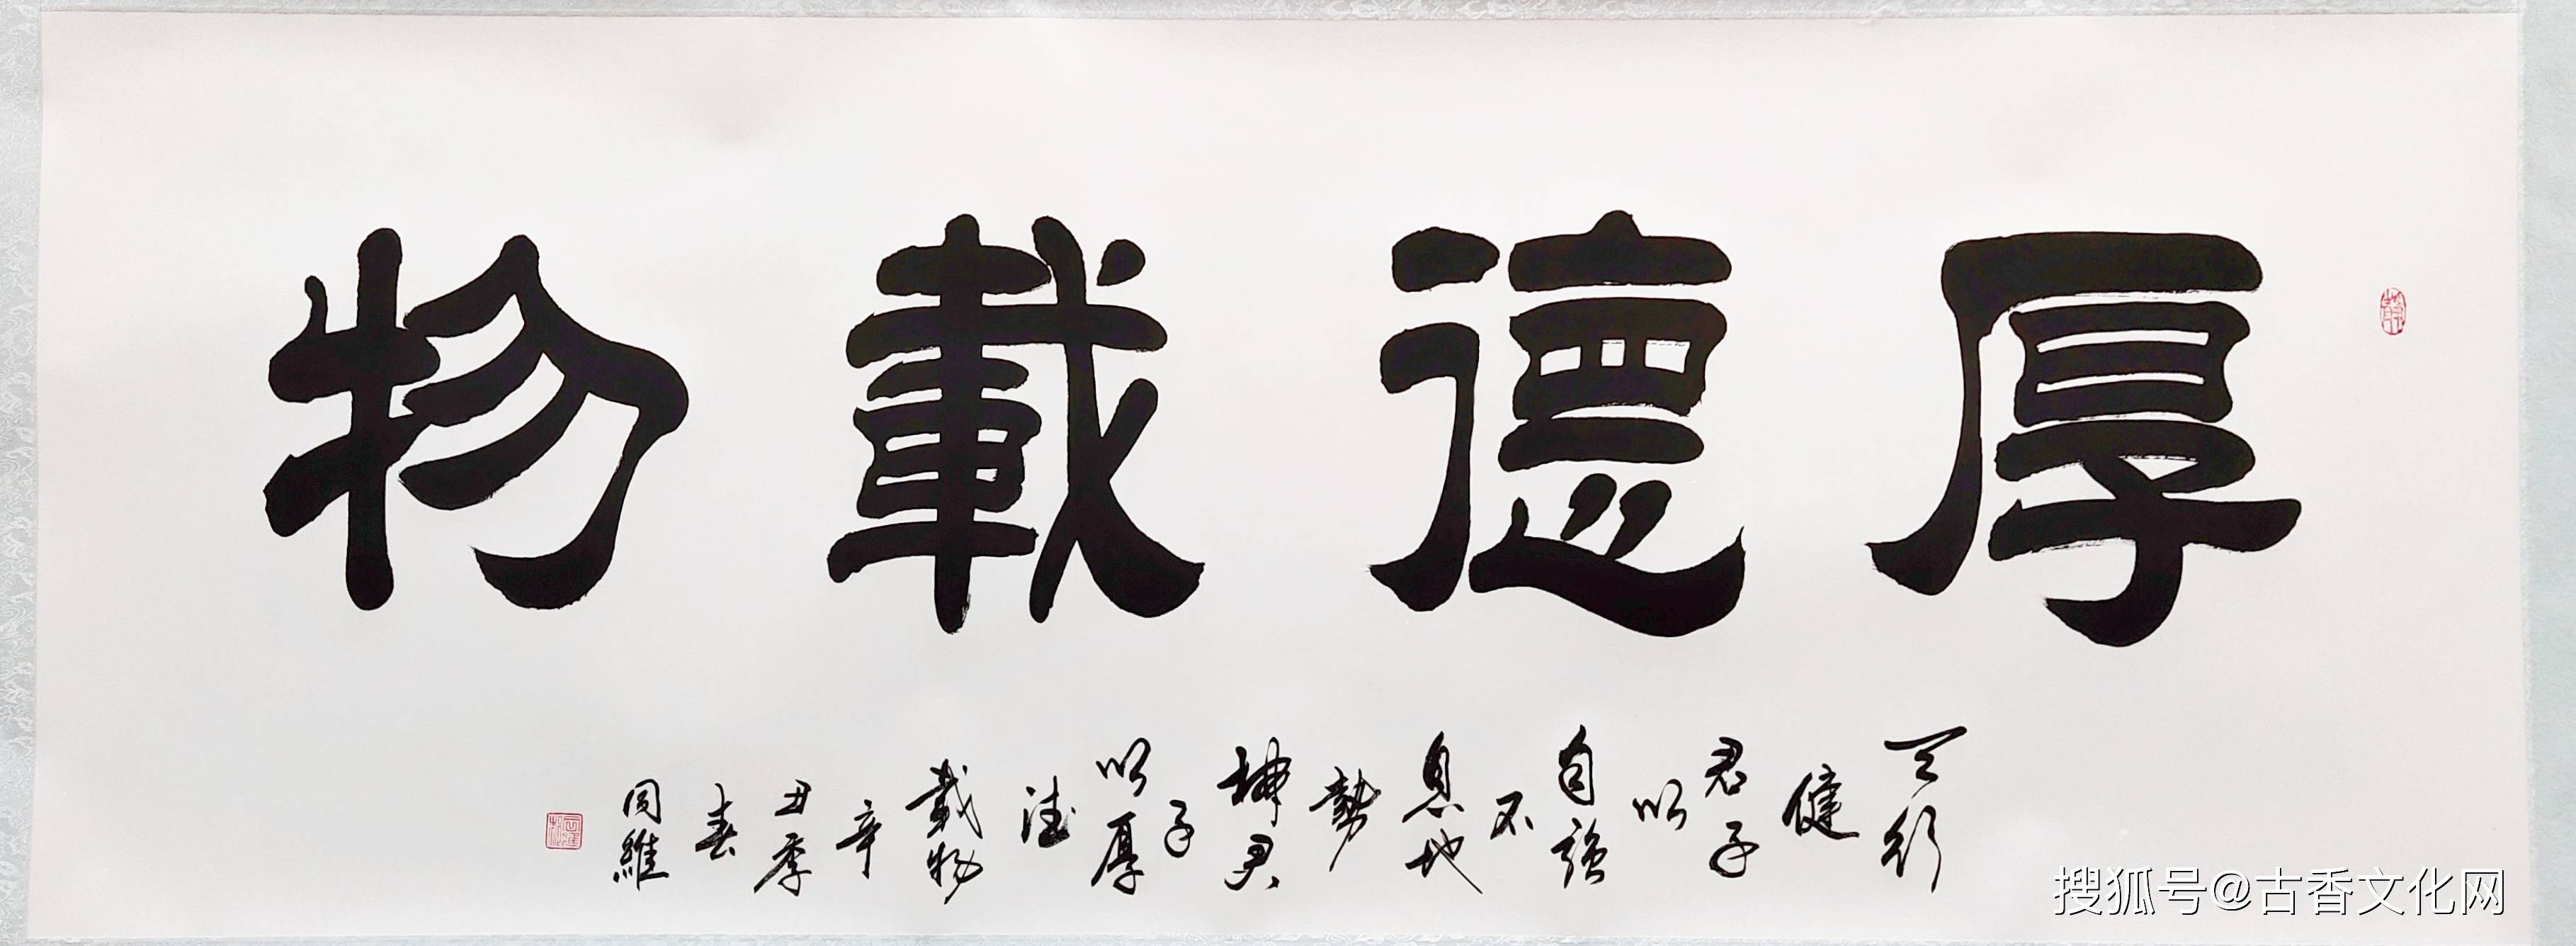 厚德載物
天行
健
君子
以
自強
不
息地
勢
坤君
子
以厚
德
載物
辛
丑季
春
同維
搜狐号@古香文化网